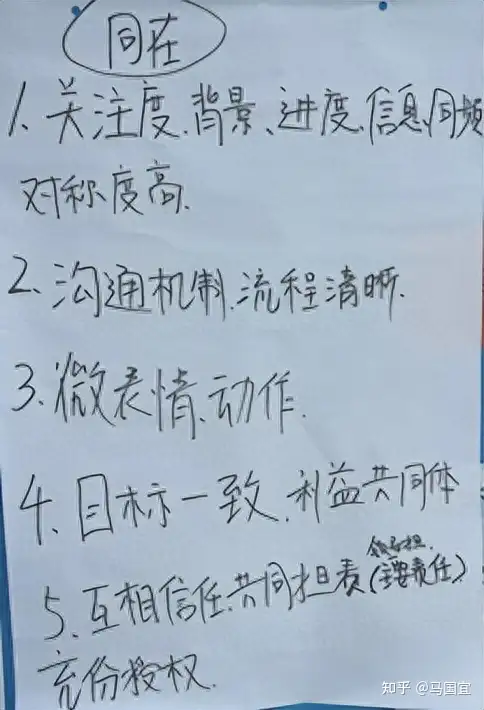 同在
1、关注度、背景、进度、信息、同频
对称度高.
2、沟通机制、流程清晰.
3、微表情、动作.
4、目标一致、利益共同体
担.
5、互相信任、共同担责(主要责任)
充份授权.
知乎 @马国宜